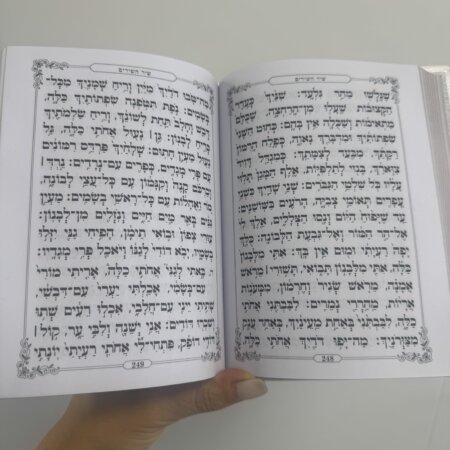 שיר השירים
שֶׁגָּלְשׁוּ מֵהַר גִּלְעָד: שִׁנַּיִךְ כְּעֵדֶר
הַקְּצוּבוֹת שֶׁעָלוּ מִן־הָרַחְצָה, שֶׁכֻּלָּם
מַתְאִימוֹת וְשַׁכֻּלָה אֵין בָּהֶם: כְּחוּט הַשָּׁנִי
שִׂפְתוֹתַיִךְ וּמִדְבָּרֵךְ נָאוֶה, כְּפֶלַח הָרִמּוֹן
רַקָּתֵךְ, מִבַּעַד לְצַמָּתֵךְ: כְּמִגְדַּל דָּוִיד
צַוָּארֵךְ, בָּנוּי לְתַלְפִּיּוֹת, אֶלֶף הַמָּגֵן תָּלוּי
עָלָיו כֹּל שִׁלְטֵי הַגִּבֹּרִים: שְׁנֵי שָׁדַיִךְ כִּשְׁנֵי
עֳפָרִים תְּאוֹמֵי צְבִיָּה, הָרֹעִים בַּשּׁוֹשַׁנִּים:
עַד שֶׁיָּפוּחַ הַיּוֹם וְנָסוּ הַצְּלָלִים, אֵלֶךְ לִי
אֶל־הַר הַמּוֹר וְאֶל־גִּבְעַת הַלְּבוֹנָה: כֻּלָּךְ
יָפָה רַעְיָתִי וּמוּם אֵין בָּךְ: אִתִּי מִלְּבָנוֹן
כַּלָּה, אִתִּי מִלְּבָנוֹן תָּבוֹאִי, תָּשׁוּרִי | מֵרֹאשׁ
אֲמָנָה, מֵרֹאשׁ שְׂנִיר וְחֶרְמוֹן, מִמְּעֹנוֹת
אֲרָיוֹת, מֵהַרְרֵי נְמֵרִים: לִבַּבְתִּנִי אֲחֹתִי
כַּלָּה, לִבַּבְתִּנִי בְּאַחַת מֵעֵינַיִךְ, בְּאַחַד עֲנָק
מִצַּוְּרֹנָיִךְ: מַה־יָּפוּ דֹדַיִךְ אֲחֹתִי כַלָּה,
248
שיר השירים
מַה־טֹּבוּ דֹדַיִךְ מִיַּיִן וְרֵיחַ שְׁמָנַיִךְ מִכָּל־
בְּשָׂמִים: נֹפֶת תִּטֹּפְנָה שִׂפְתוֹתַיִךְ כַּלָּה,
דְּבַשׁ וְחָלָב תַּחַת לְשׁוֹנֵךְ, וְרֵיחַ שַׂלְמֹתַיִךְ
כְּרֵיחַ לְבָנוֹן: גַּן | נָעוּל אֲחֹתִי כַלָּה, גַּל
נָעוּל מַעְיָן חָתוּם: שְׁלָחַיִךְ פַּרְדֵּס רִמּוֹנִים
עִם פְּרִי מְגָדִים, כְּפָרִים עִם־נְרָדִים: נֵרְדְּ |
וְכַרְכֹּם קָנֶה וְקִנָּמוֹן עִם כָּל־עֲצֵי לְבוֹנָה,
מֹר וַאֲהָלוֹת עִם כָּל־רָאשֵׁי בְשָׂמִים: מַעְיַן
גַּנִּים בְּאֵר מַיִם חַיִּים וְנֹזְלִים מִן־לְבָנוֹן:
עוּרִי צָפוֹן וּבוֹאִי תֵימָן, הָפִיחִי גַנִּי יִזְּלוּ
בְשָׂמָיו, יָבֹא דוֹדִי לְגַנּוֹ וְיֹאכַל פְּרִי מְגָדָיו:
בָּאתִי לְגַנִּי אֲחֹתִי כַלָּה, אָרִיתִי מוֹרִי
עִם־בְּשָׂמִי, אָכַלְתִּי יַעְרִי עִם־דִּבְשִׁי,
שָׁתִיתִי יֵינִי עִם־חֲלָבִי, אִכְלוּ רֵעִים, שְׁתוּ
וְשִׁכְרוּ דּוֹדִים: אֲנִי יְשֵׁנָה וְלִבִּי עֵר, קוֹל |
דּוֹדִי דוֹפֵק, פִּתְחִי־לִי אֲחֹתִי רַעְיָתִי יוֹנָתִי
249